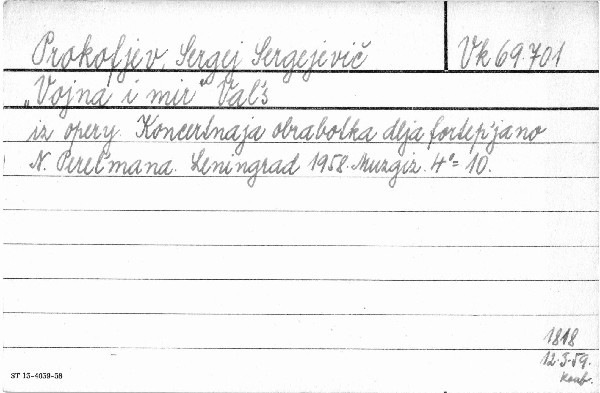 Prokofjev, Sergej Sergejevič Vk 69.701
„Vojna i mir" Val's
iz opery. Koncertnaja obrabotka dlja fortep'jano
N. Perel'mana. Leningrad 1958. Muzgiz. 4°= 10.
1818
12.3.59.
ST 13-4039-58